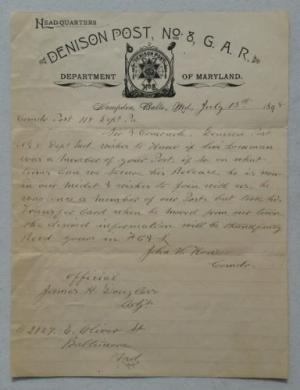 HEAD-QUARTERS
DENISON POST, No. 8, G. A. R.
DENISON POST
No 8
DEPARTMENT OF MARYLAND.
Hampden, Balto., Md., July 13th 189
Post Dept Pa
Sir & Comrade. Denison Post
No 8 Dept Md. wishes to Know if
was a member of your Post, if so on what
time can we secure his Release he is now
in our midst & wishes to join with us, he
was once a member of our Post but took his
Transfer Card when he moved from our town
the desired information will be thankfully
Recd yours in F C & L
John W.
Comdr.
Official
James H. Douglass
Adjt
2127 E. Oliver St
Baltimore
Md